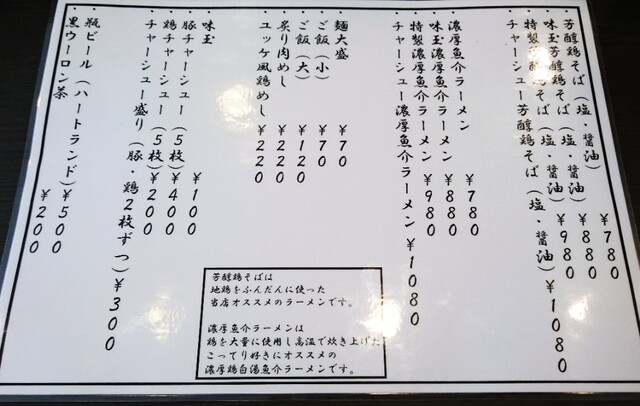 ・芳醇鶏そば（塩・醤油） ¥780
・味玉芳醇鶏そば（塩・醤油） ¥880
・特製芳醇鶏そば（塩・醤油） ¥980
・チャーシュー芳醇鶏そば（塩・醤油） ¥1080
・濃厚魚介ラーメン ¥780
・味玉濃厚魚介ラーメン ¥880
・特製濃厚魚介ラーメン ¥980
・チャーシュー濃厚魚介ラーメン ¥1080
・麺大盛 ¥70
・ご飯（小） ¥70
・ご飯（大） ¥120
・炙り肉めし ¥220
・ユッケ風鶏めし ¥220
・味玉 ¥100
・豚チャーシュー（5枚） ¥400
・鶏チャーシュー（5枚） ¥200
・チャーシュー盛り（豚・鶏2枚ずつ） ¥300
・瓶ビール（ハートランド） ¥500
・黒ウーロン茶 ¥200
芳醇鶏そばは
地鶏をふんだんに使った
当店オススメのラーメンです。
濃厚魚介ラーメンは
鶏を大量に使用し高温で炊き上げた
こってり好きにオススメの
濃厚鶏白湯魚介ラーメンです。